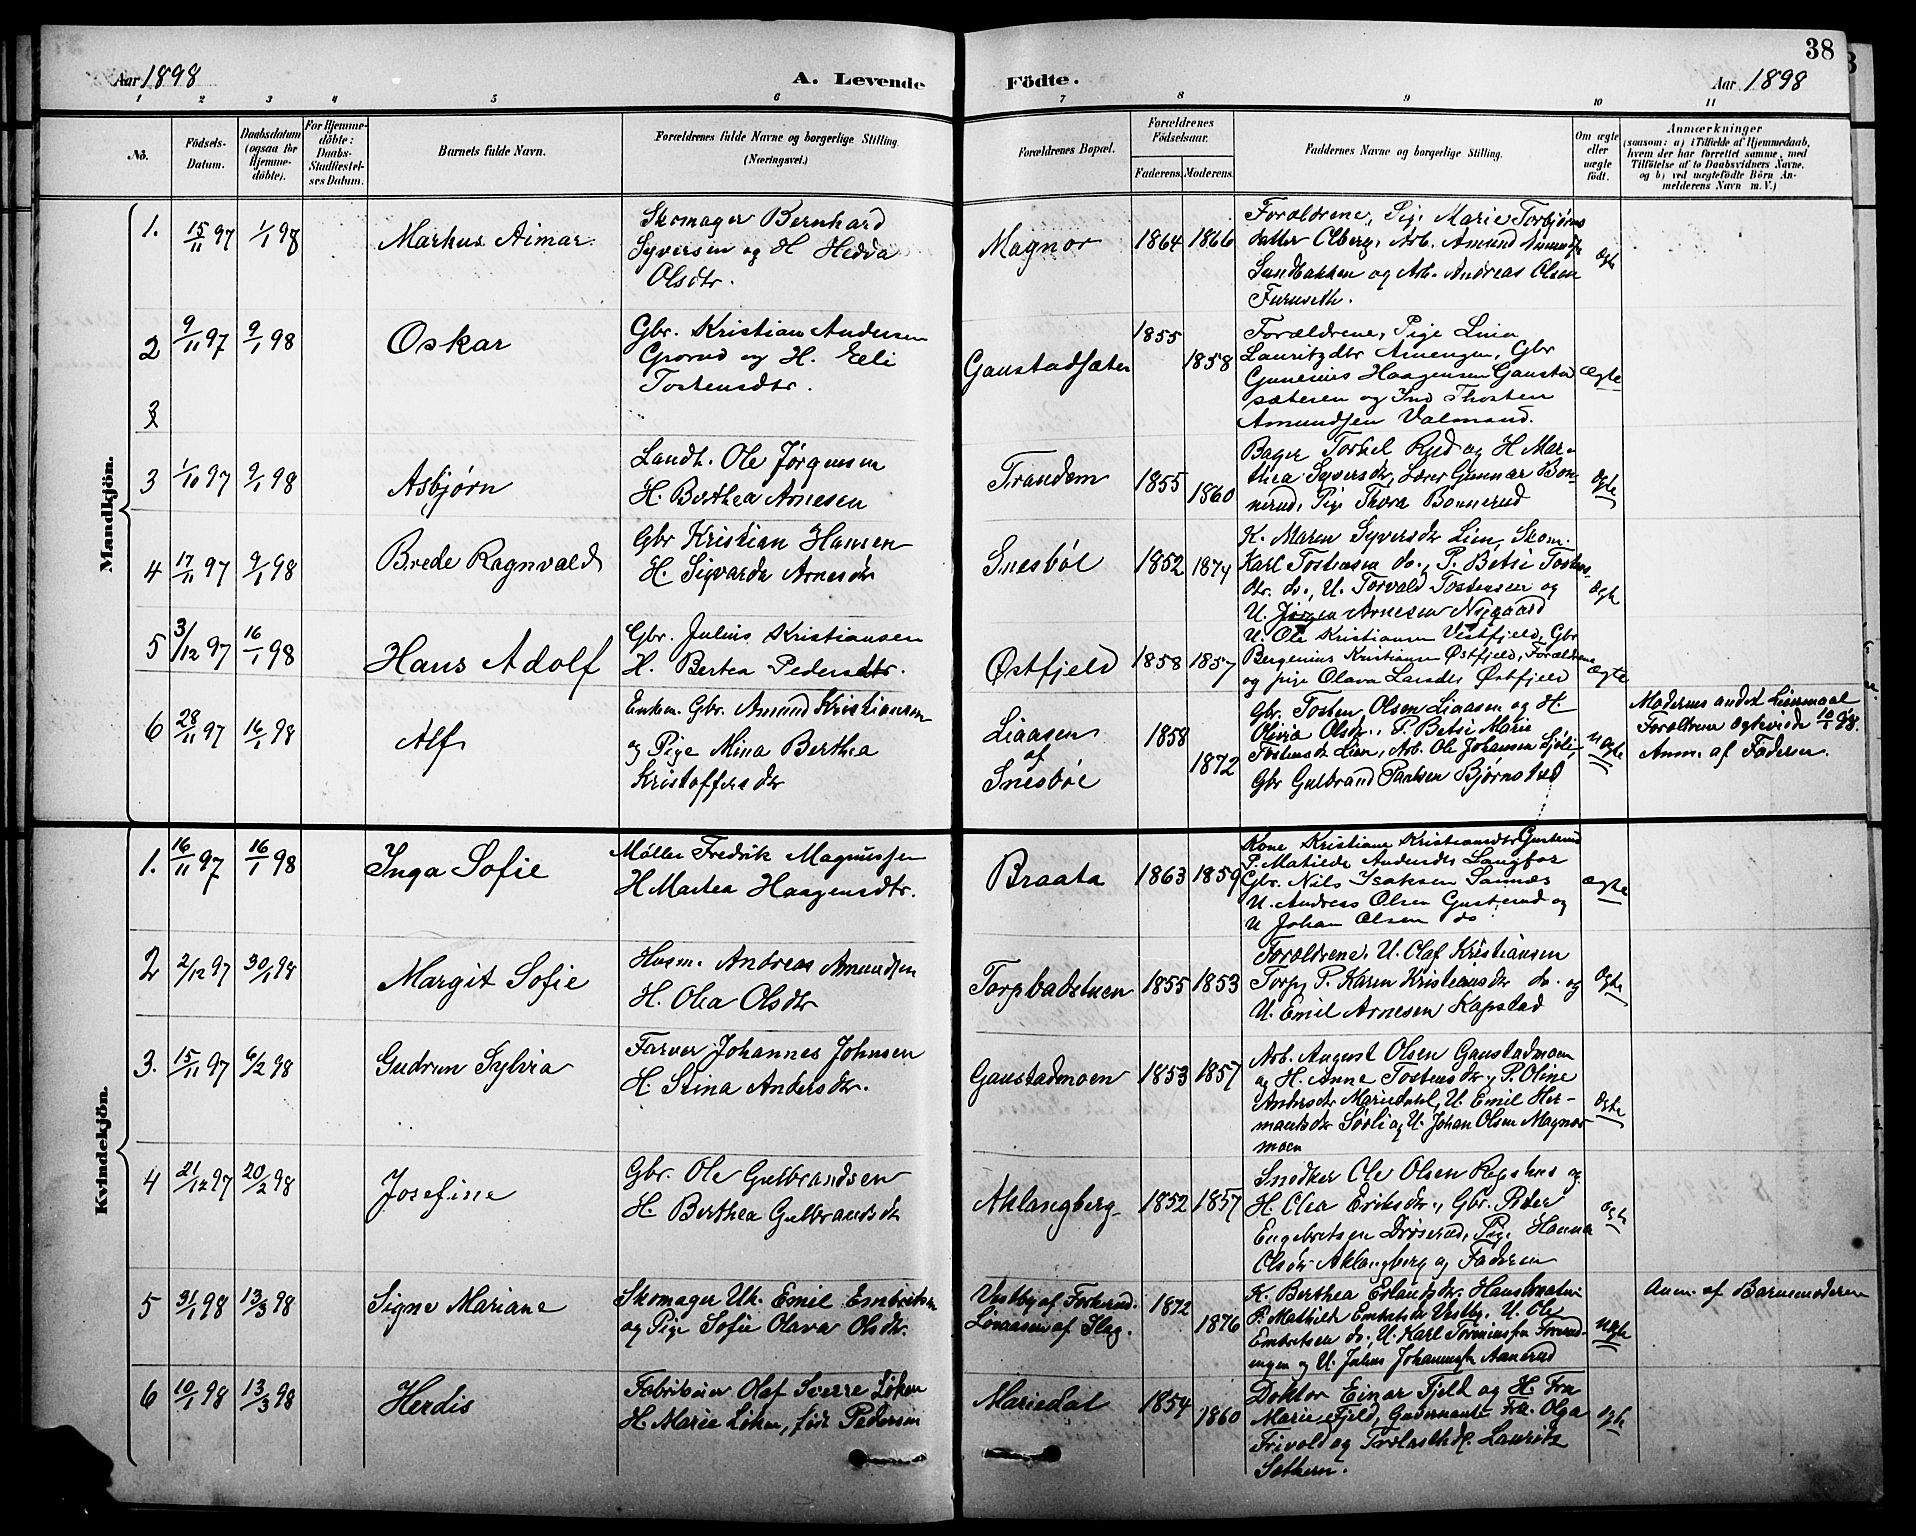 38
Aar 1898
A. Levende
Födte.
Aar 1898
1 2 3 4 5 6 7 8 9 10 11
No.
Födsels-
Datum.
Daabsdatum
(ogsaa for
Hjemme-
döbte).
For Hjemme-
döbte:
Daabs-
Stadfæstel-
ses Datum.
Barnets fulde Navn.
Forældrenes fulde Navne og borgerlige Stilling
(Næringsvei.)
Forældrenes Bopæl.
Forældrenes
Födselsaar.
Faderens.
Moderens.
Faddernes Navne og borgerlige Stilling.
Om ægte
eller
uægte
födt.
Anmærkninger
(saasom: a) i Tilfælde af Hjemmedaab,
hvem der har forrettet samme, med
Tilföielse af to Daabsvidners Navne,
og b) ved uægtefödte Börn An-
melderens Navn m. V.)
Mandkjön.
1. 15/11 97 1/1 98 Markus Aimar.
Skomager Bernhard
Syversen og H Hedda
Olsdtr.
Magnor 1864 1866
Forældrene, Pige Marie Torbjørns
datter Olberg, Arb. Amund
Sundbakken og Arb. Andreas Olsen
Furuseth.
ægte
2 9/11 97 9/1 98 Oskar
Gbr. Kristian Andersen
Grorud og H. Eeli
Tostensdtr.
Gaustadsæter 1855 1858
Forældrene, Pige Lina
Lauritzdtr Arnengen, Gbr
Gunerius Haagensen Gaustad
sæteren og Ind Thosten
Amundsen Valmand.
ægte
3
3 1/10 97 9/1 98 Asbjørn
Landh. Ole Jørgensen
H. Berthea Arnesen
Trandem 1855 1860
Bager Torkel Ryd og H Mar-
thea Syversdtr, Lærer Gunnar Bon-
nerud, Pige Thora Bonnerud
ægte
4 17/11 97 9/1 98 Brede Ragnvald
Gbr Kristian Hansen
H. Sigvarda Arnesdtr
Snesbøl 1852 1874
K. Maren Syversdtr Lien, Skom.
Karl Tostensen do., P. Betsi Tostens-
dtr. do., U. Torvald Tostensen og
U. Jørgen Arnesen Nygaard
ægte
5 3/12 97 16/1 98 Hans Adolf
Gbr. Julius Kristiansen
H. Bertea Pedersdtr.
Østfjeld 1858 1857
U. Ole Kristiansen Vestfjeld, Gbr
Bergenius Kristiansen Østfjeld, Forældrene
og pige Olava Larsdtr Østfjeld
ægte
6 28/11 97 16/1 98 Alf
Enkem. Gbr. Amund Kristiansen
og Pige Mina Berthea
Kristoffersdtr
Liaasen
af
Snesbøl
1858 1872
Gbr. Tosten Olsen Liaasen og H.
Olivia Olsdtr., P. Betsi Marie
Tostensdtr Lien, Arb. Ole Johansen Sjøli,
Gbr Gulbrand Paulsen Bjørnstad
uægte
Moderens andet Leiermaal
Forældrene ægteviede 10/1 98.
Anm. af Faderen.
Kvindekjön.
1. 16/11 97 16/1 98 Inga Sofie
Møller Fredrik Magnussen
H Martea Haagensdtr.
Braata 1863 1859
Kone Kristiane Kristiansdtr Gusterud
P. Matilde Andersdtr Langfos
Gbr. Nils Isaksen Sannæs
U. Andreas Olsen Gusterud og
U Johan Olsen do
ægte
2 2/12 97 30/1 98 Margit Sofie
Husm. Andreas Amundsen
H. Olea Olsdtr
Torpbadstuen 1855 1853
Forældrene, U. Olaf Kristiansen
Torp, P. Karen Kristiansdtr do. og
U. Emil Arnesen Kapstad
ægte
3. 15/11 97 6/2 98 Gudrun Sylvia
Farver Johannes Johnsen
H. Stina Andersdtr.
Gaustadmoen 1853 1857
Arb. August Olsen Gaustadmoen
og H. Anne Tostensdtr, P. Oline
Andersdtr Mariedahl, U. Emil Her-
mansdtr Sørli og U. Johan Olsen Magnor
moen
ægte
4 21/12 97 20/2 98 Josefine
Gbr. Ole Gulbrandsen
H. Berthea Gulbrandsdtr
Aklangberg 1852 1857
Snedker Ole Olsen og
H. Olea Eriksdtr., Gbr. Peder
Engebretsen Drøserud, Pige Hanna
Olsdtr Aklangberg og Faderen
ægte
5 31/1 98 13/3 98 Signe Mariane
Skomager Uk. Emil Embretsen
og Pige Sofie Olava Olsdtr.
Vestby af
af Slag.
1872 1876
K. Berthea Erlandsdtr.
P. Mathilde Embretsdtr Vestby, U. Ole
Embretsen do, U. Karl
og U. Julius Johannessen Aanerud
uægte
Anm. af Barnemoderen
6 10/1 98 13/3 98 Herdis
Fabrikeier Olaf Sverre Løken
H. Marie Løken, født Pedersen
Mariedal 1854 1860
Doktor Einar Fjeld og H. Fru
Marie Fjeld, Guvernante Frk. Olga
Trivold og Lauritz
Sethern.
ægte